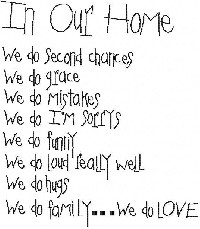 In Our Home
We do second chances
We do grace
We do mistakes
We do I'm sorrys
We do funny
We do loud really well
We do hugs
We do family...We do LOVE